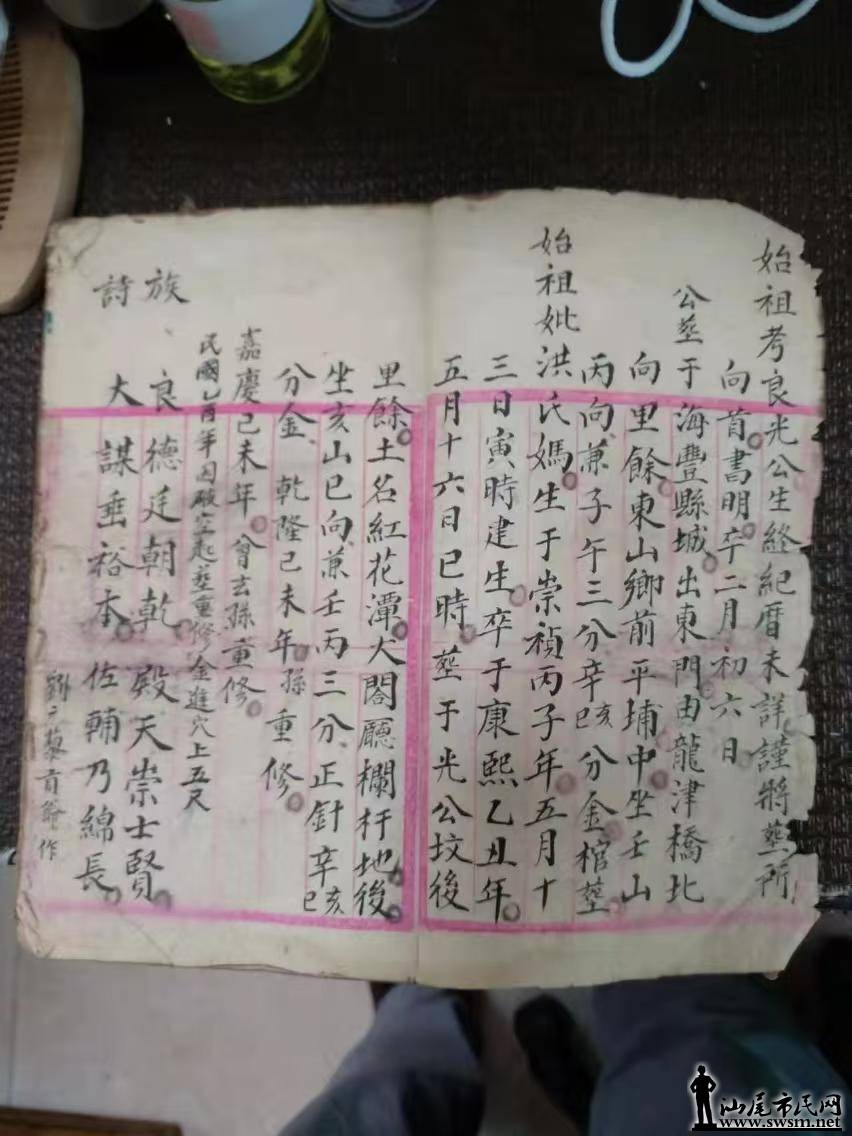 始祖考良光公生終紀曆未詳謹將塟所
向首書明卒二月初六日
公塟于海豐縣城出東門由龍津橋北
向里餘東山鄉前平埔中坐壬山
丙向兼子午三分辛亥辛巳分金棺塟
始祖妣洪氏媽生于崇禎丙子年五月十
三日寅時建生卒于康熙乙丑年
五月十六日巳時塟于光公坟後
里餘土名紅花潭犬閣廳欄杆地後
坐亥山巳向兼壬丙三分正針辛亥巳
分金乾隆己未年孫重修
嘉慶己未年曾玄孫重修
民國乙酉年因破空起塟重修金進穴上五尺
族詩
良德廷朝乾殿天崇士賢
大謀垂裕本佐輔乃綿長
劉 藜 作
汕尾市民网
www.swsm.net